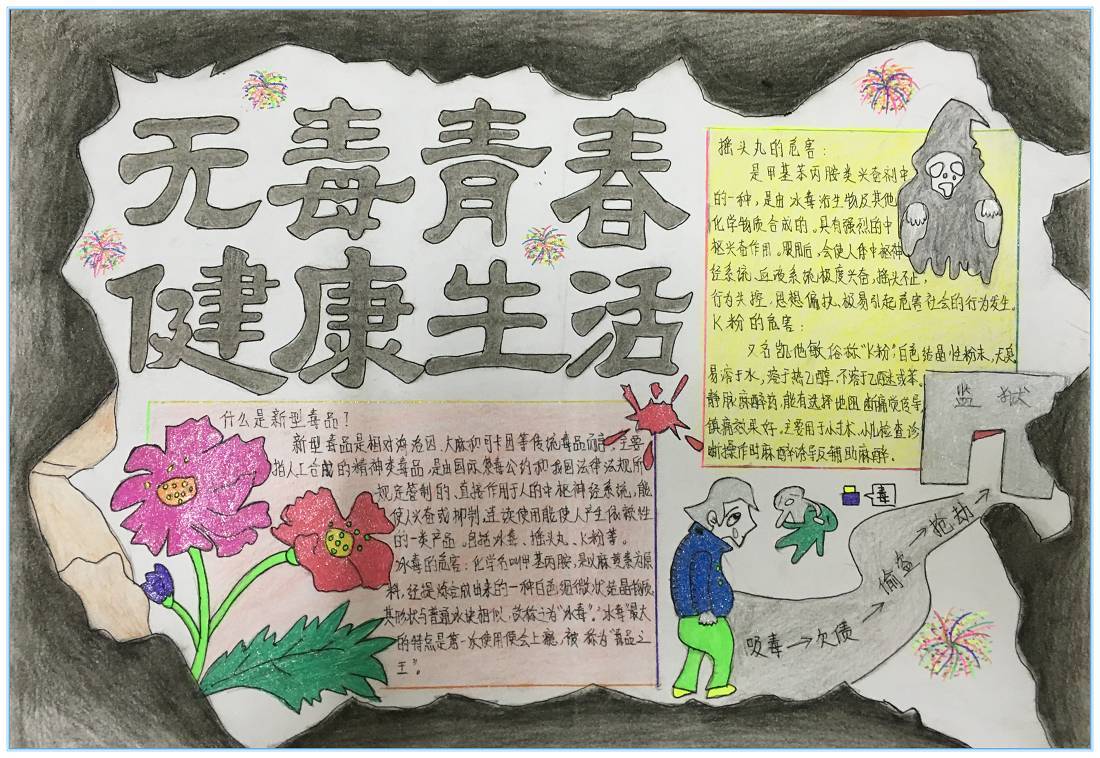 无毒青春
健康生活
什么是新型毒品?
新型毒品是相对海洛因、大麻和可卡因等传统毒品而言,主要
指人工合成的精神类毒品,是由国际禁毒公约和我国法律法规所
规定管制的、直接作用于人的中枢神经系统,能
使人兴奋或抑制,连续使用能使人产生依赖性
的一类产品。包括冰毒、摇头丸、K粉等。
冰毒的危害:化学名叫甲基丙胺,是以麻黄素为原
料,经提炼合成出来的一种白色细微状结晶物质,
其形状与普通冰块相似,故称之为“冰毒”。“冰毒”最大
的特点是第一次使用便会上瘾,被称为“毒品之
王”。
摇头丸的危害:
是甲基苯丙胺类兴奋剂中
的一种,是由冰毒衍生物及其他
化学物质合成的。具有强烈的中
枢兴奋作用。服用后,会使人体中枢神
经系统、 系统极度兴奋,摇头不止,
行为失控,思想偏执,极易引起危害社会的行为发生。
K粉的危害:
又名凯他敏,俗称“K粉”,白色结晶性粉末,无臭
易溶于水,溶于热乙醇,不溶于乙醚或苯。
静脉麻醉药,能有选择地阻断痛觉传导,
镇痛效果好。主要用于小手术、小儿检查诊
断操作时麻醉诱导及辅助麻醉。
监狱
毒
吸毒→欠债→偷盗→抢劫→